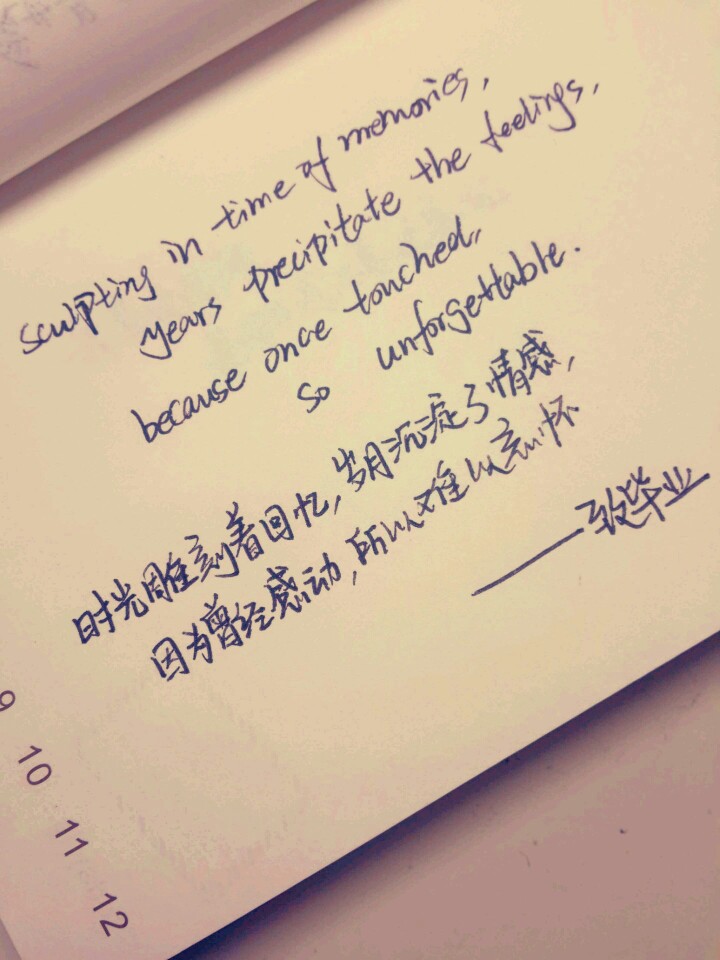 sculpting in time of memories,
years precipitate the feelings,
because once touched,
so unforgettable.
时光雕刻着回忆,岁月沉淀了情感,
因为曾经感动,所以难以忘怀
——致毕业
9
10
11
12